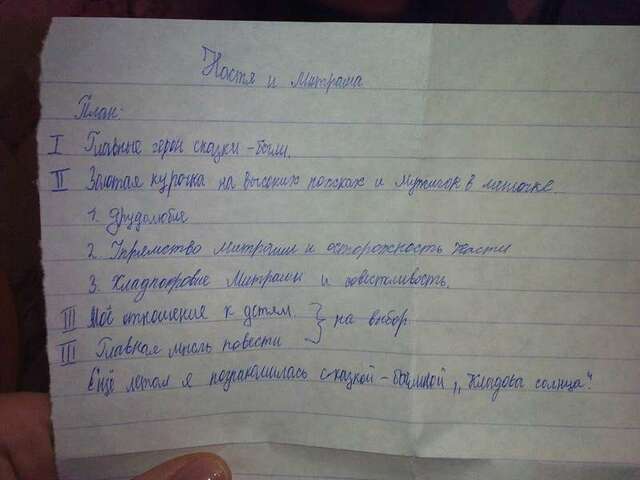 Настя и Митраша
План:
I Главные герои сказки-были.
II Золотая курочка на высоких ножках и мужичок в мешочке.
1. Трудолюбие
2. Упрямство Митраши и осторожность Насти
3. Хладнокровие Митраши и совестливость.
III Моё отношение к детям. } на выбор
III Главная мысль повести
Ещё летом я познакомилась с сказкой-былиной „Кладовая солнца".